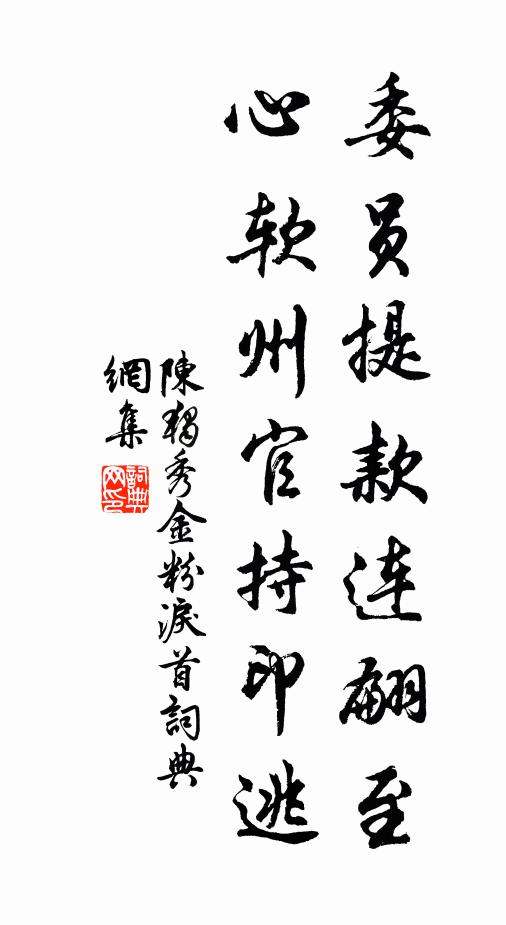 委员提款连翩至
心软州官持印逃
陳獨秀金粉淚首詞典
網集
詞典
网印